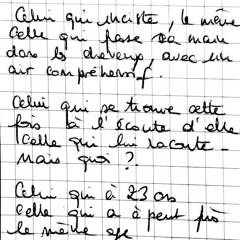 Celui qui insiste, le même
Celle qui passe sa main
dans les cheveux, avec un
air compréhensif.
Celui qui se trouve cette
fois à l'écoute d'elle
Celle qui lui raconte -
Mais quoi ?
Celui qui à 23 ans
Celle qui a à peut près
le même age